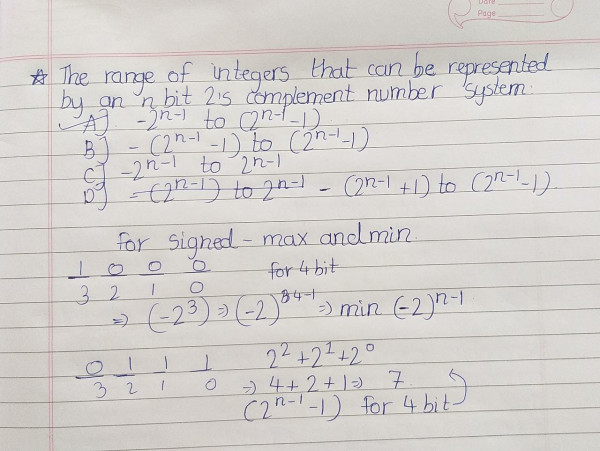 Date
Page
☆ The range of integers that can be represented
by an n bit 2's complement number system.
✓A] -2ⁿ⁻¹ to (2ⁿ⁻¹-1)
B] -(2ⁿ⁻¹-1) to (2ⁿ⁻¹-1)
C] -2ⁿ⁻¹ to 2ⁿ⁻¹
D] -(2ⁿ⁻¹) to 2ⁿ⁻¹ - (2ⁿ⁻¹+1) to (2ⁿ⁻¹-1).
for signed - max and min.
1 0 0 0 for 4 bit
3 2 1 0
⇒ (-2³) ⇒ (-2)⁴⁻¹ ⇒ min (-2)ⁿ⁻¹
0 1 1 1 2²+2¹+2⁰
3 2 1 0 ⇒ 4+2+1 ⇒ 7.
(2ⁿ⁻¹-1) for 4 bit